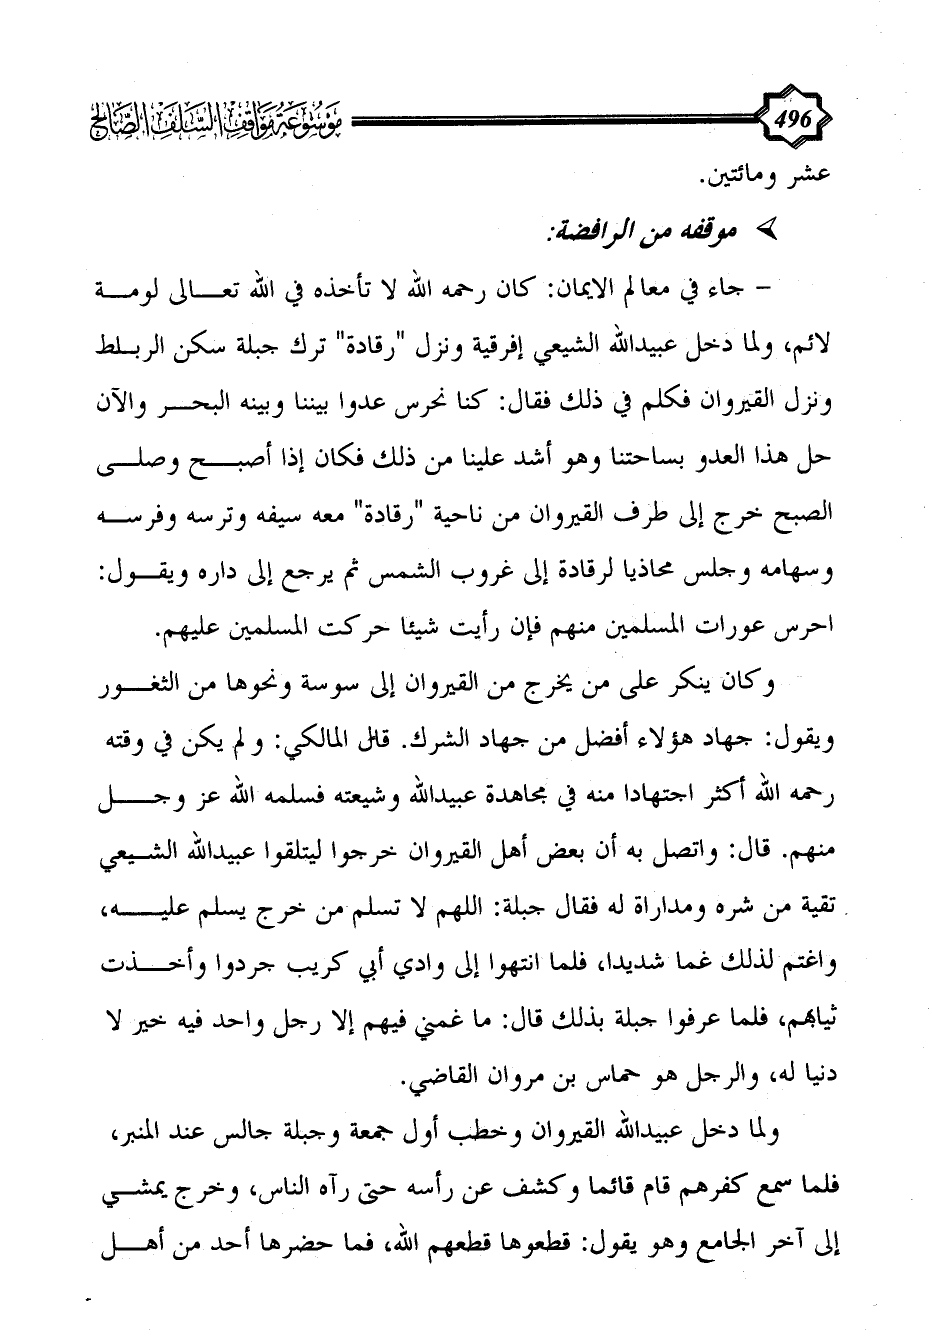 496
موسوعة مواقف السلف الصالح
عشر ومائتين.
موقفه من الرافضة:
- جاء في معالم الايمان: كان رحمه الله لا تأخذه في الله تعالى لومة
لائم، ولما دخل عبيدالله الشيعي إفرقية ونزل "رقادة" ترك جبلة سكن الربلط
ونزل القيروان فكلم في ذلك فقال: كنا نحرس عدوا بيننا وبينه البحر والآن
حل هذا العدو بساحتنا وهو أشد علينا من ذلك فكان إذا أصبح وصلى
الصبح خرج إلى طرف القيروان من ناحية "رقادة" معه سيفه وترسه وفرسه
وسهامه وجلس محاذيا لرقادة إلى غروب الشمس ثم يرجع إلى داره ويقول:
احرس عورات المسلمين منهم فإن رأيت شيئا حركت المسلمين عليهم.
وكان ينكر على من يخرج من القيروان إلى سوسة ونحوها من الثغور
ويقول: جهاد هؤلاء أفضل من جهاد الشرك. قال المالكي: ولم يكن في وقته
رحمه الله أكثر اجتهادا منه في مجاهدة عبيدالله وشيعته فسلمه الله عز وجل
منهم. قال: واتصل به أن بعض أهل القيروان خرجوا ليتلقوا عبيدالله الشيعي
تقية من شره ومداراة له فقال جبلة: اللهم لا تسلم من خرج يسلم عليه،
واغتم لذلك غما شديدا، فلما انتهوا إلى وادي أبي كريب جردوا وأخذت
ثيابهم، فلما عرفوا جبلة بذلك قال: ما غمني فيهم إلا رجل واحد فيه خير لا
دنيا له، والرجل هو حماس بن مروان القاضي.
ولما دخل عبيدالله القيروان وخطب أول جمعة وجبلة جالس عند المنبر،
فلما سمع كفرهم قام قائما وكشف عن رأسه حتى رآه الناس، وخرج يمشي
إلى آخر الجامع وهو يقول: قطعوها قطعهم الله، فما حضرها أحد من أهل